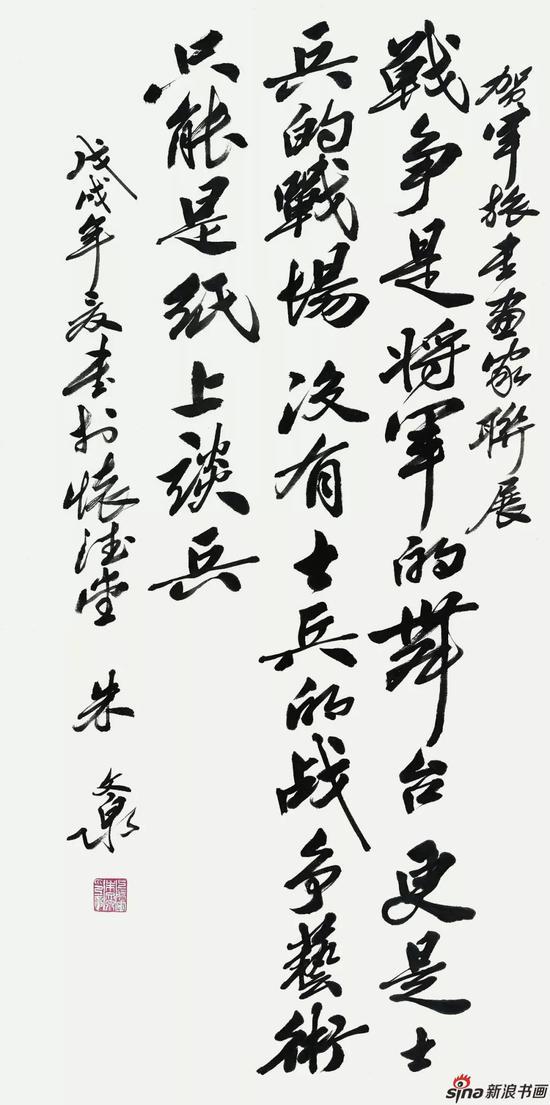 贺军旅书画家聯展
戦争是将军的舞台更是士
兵的戰場没有士兵的战争藝術
只能是纸上談兵
戊戌年夏書於懐德堂
朱文泉
sina新浪书画